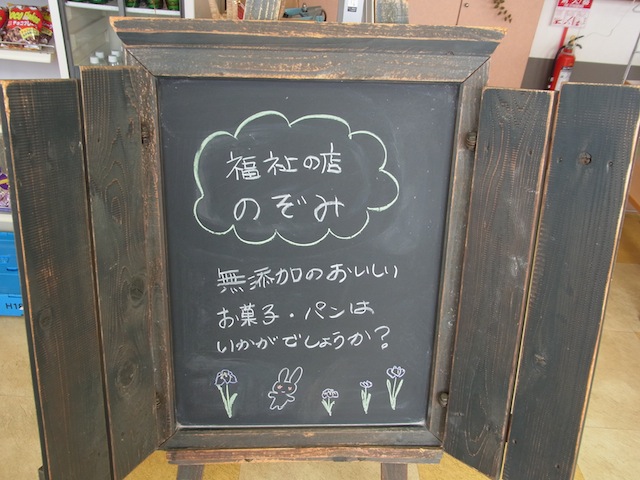 福祉の店
のぞみ
無添加のおいしい
お菓子・パンは
いかがでしょうか?